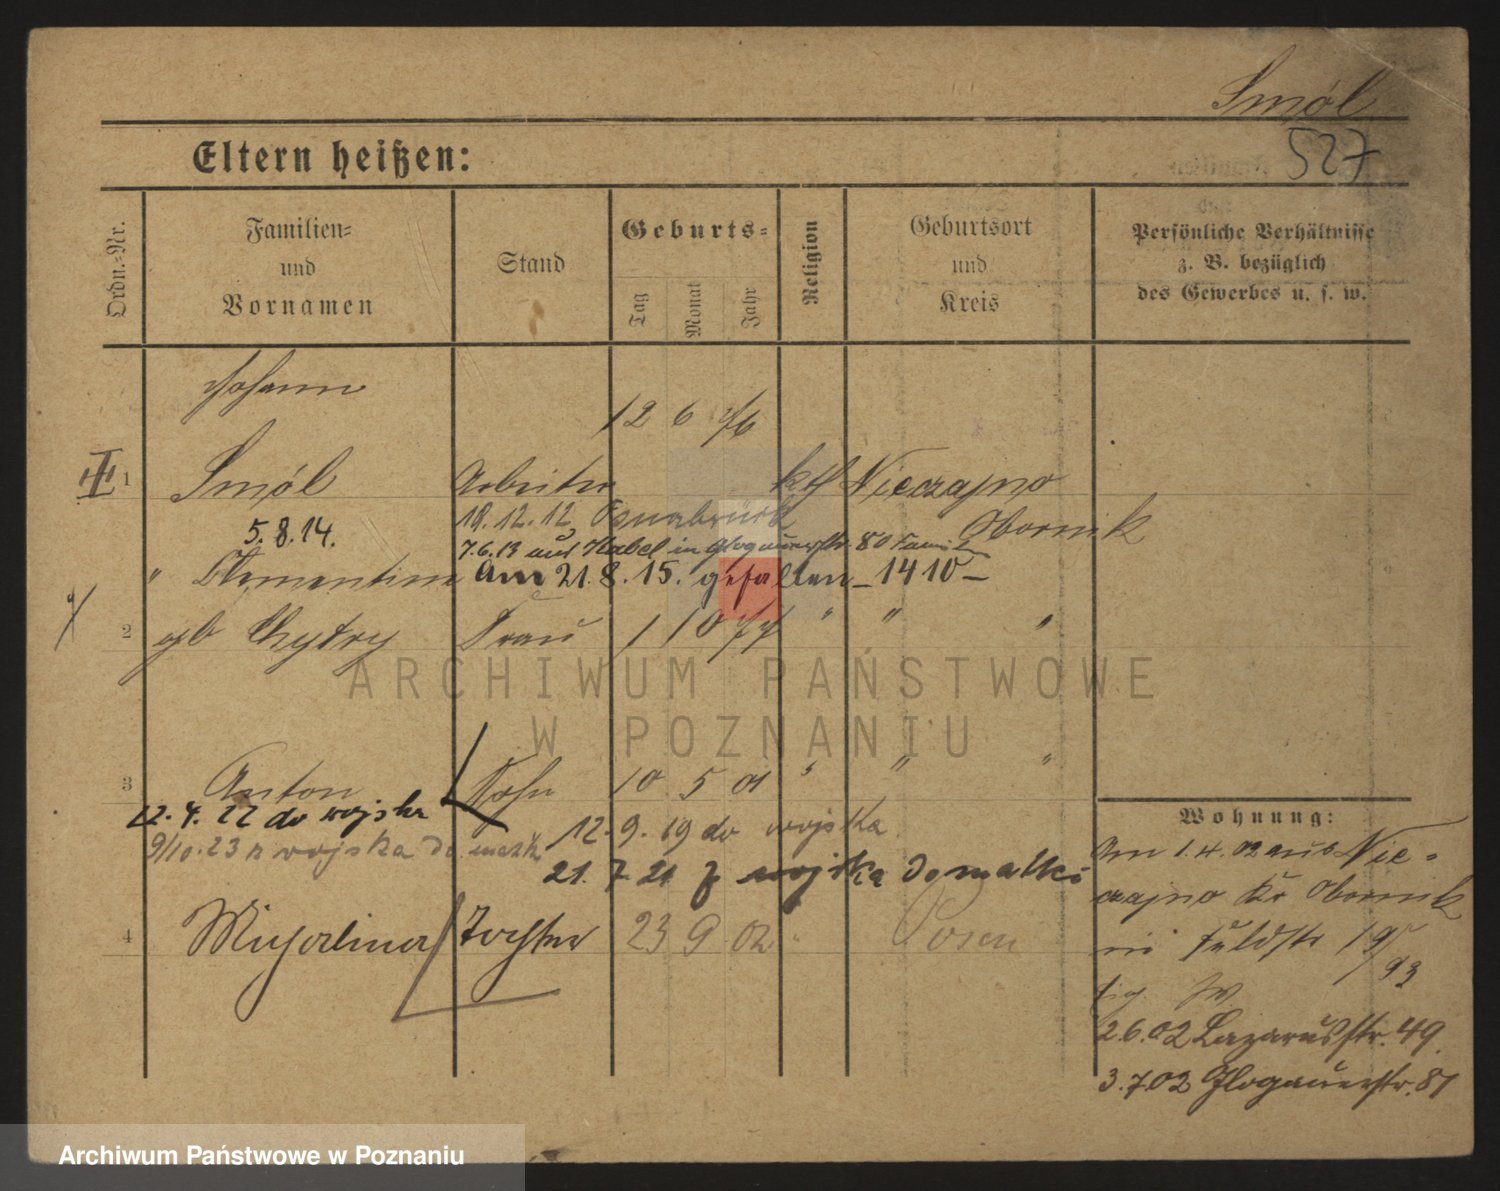 Smól
527
Eltern heißen:
Ordn.-Nr.
Familien-
und
Vornamen
Stand
Geburts-
Tag
Monat
Jahr
Religion
Geburtsort
und
Kreis
Persönliche Verhältnisse
z. B. bezüglich
des Gewerbes u. s. w.
Johann
12 6 76
III 1 Smól Arbeiter kth Nieczajno
18.12.12 Osnabrück Obornik
5.8.14.
7.6.13 aus Kabel in Glogauerstr. 80
" Clementine Am 21.8.15. gefallen - 1410 -
2 gb Chytry Frau 1 10 77 " " "
ARCHIWUM PAŃSTWOWE
W POZNANIU
3 Anton Sohn 10 5 01 " " "
12.4.22 do wojska
12.9.19 do wojska
9/10.23 z wojska do matki
21.7.21 z wojska do matki
4 Michalina Tochter 23 9 02 " Posen
Wohnung:
Am 1.4.02 aus Nie-
czajno Kr Obornik
in Fuldstr 19/93
2.6.02 Lazarusstr. 49.
3.7.02 Glogauerstr. 81
Archiwum Państwowe w Poznaniu